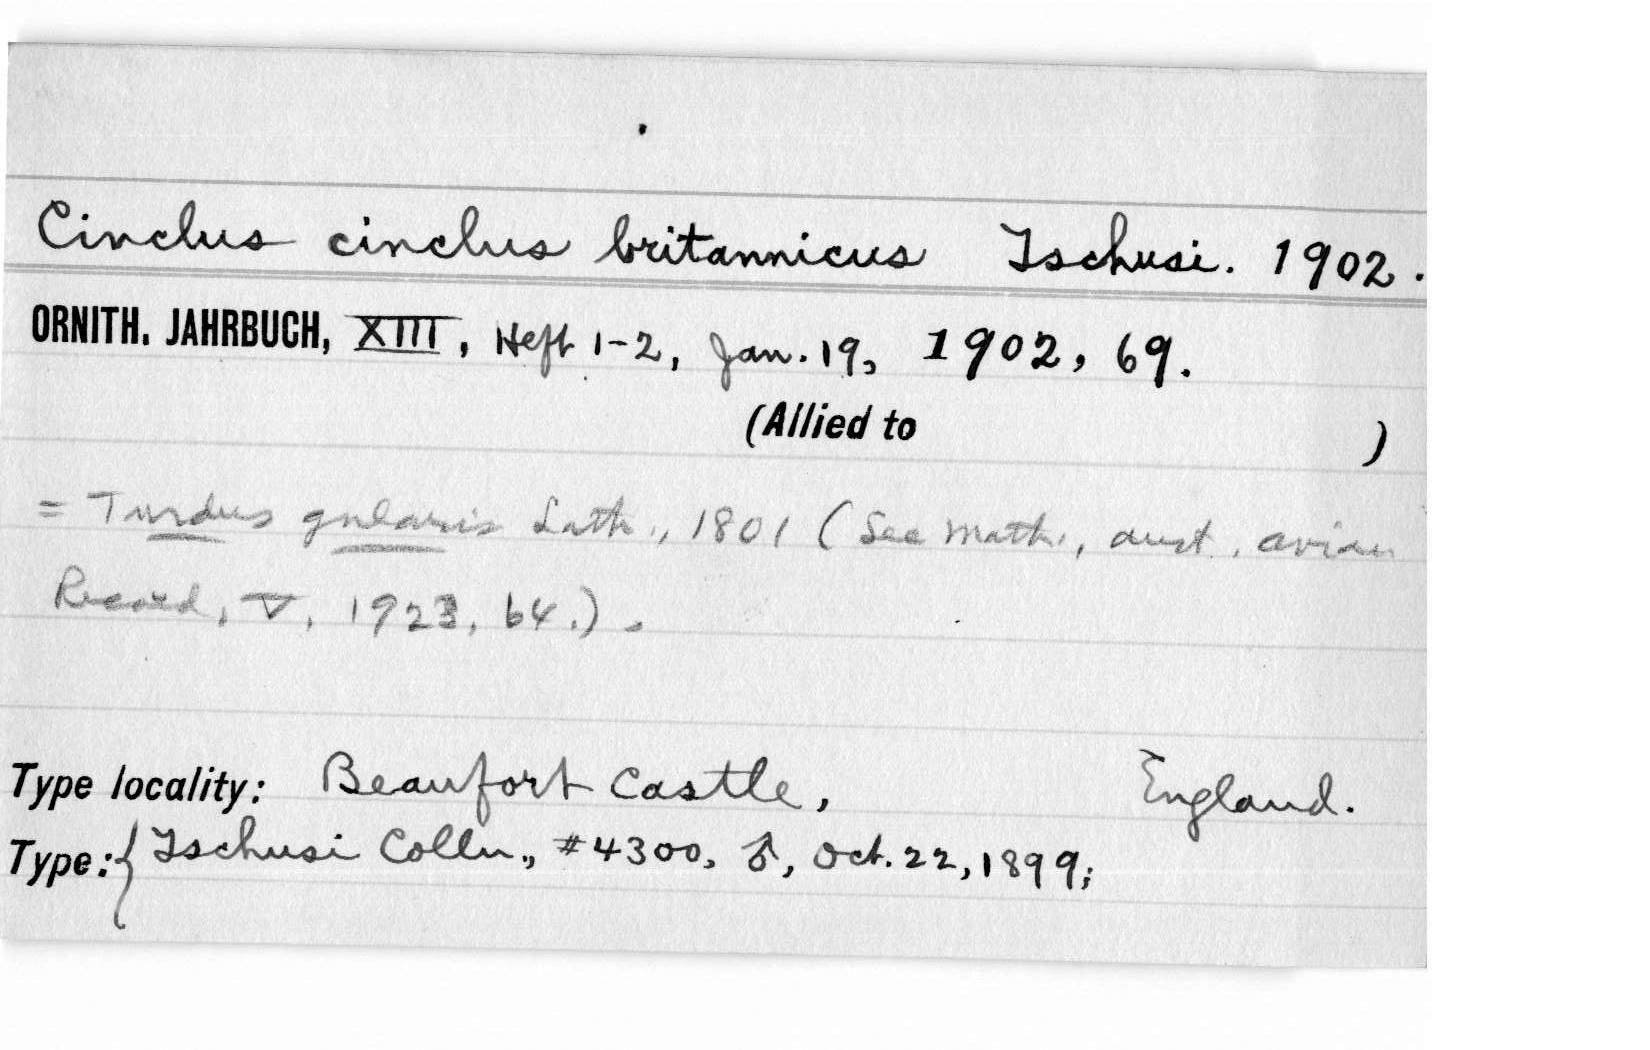 Cinclus cinclus britannicus Tschusi. 1902.
ORNITH. JAHRBUCH, XIII, Heft 1-2, Jan. 19, 1902, 69.
(Allied to )
= Turdus gularis Lath., 1801 (See Math., Aust. Avian
Record, V, 1923, 64.).
Type locality: Beaufort Castle, England.
Type: { Tschusi Colln., #4300, ♂, Oct. 22, 1899;